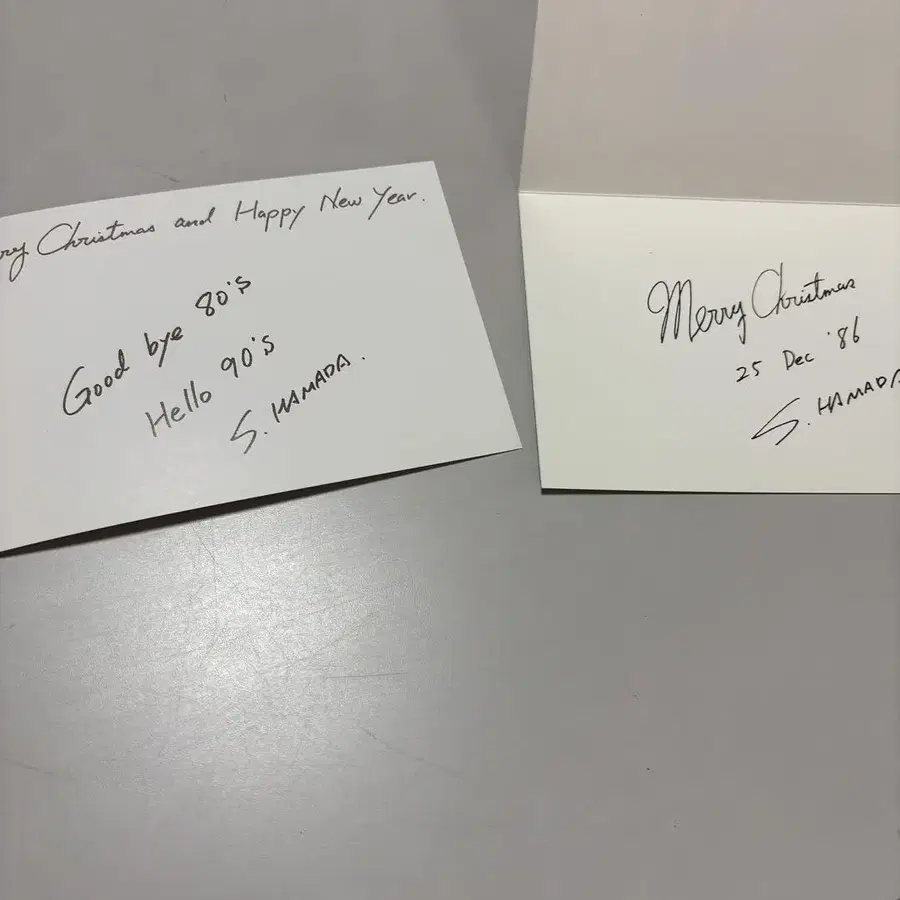 rry Christmas and Happy New Year.
Good bye 80's
Hello 90's
S. HAMADA.
Merry Christmas
25 Dec '86
S. HAMADA